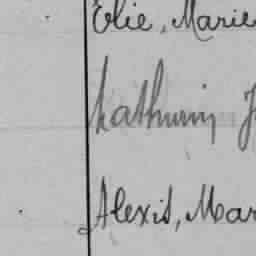 Elie, Marie
Mathurin, J
Alexis, Mar